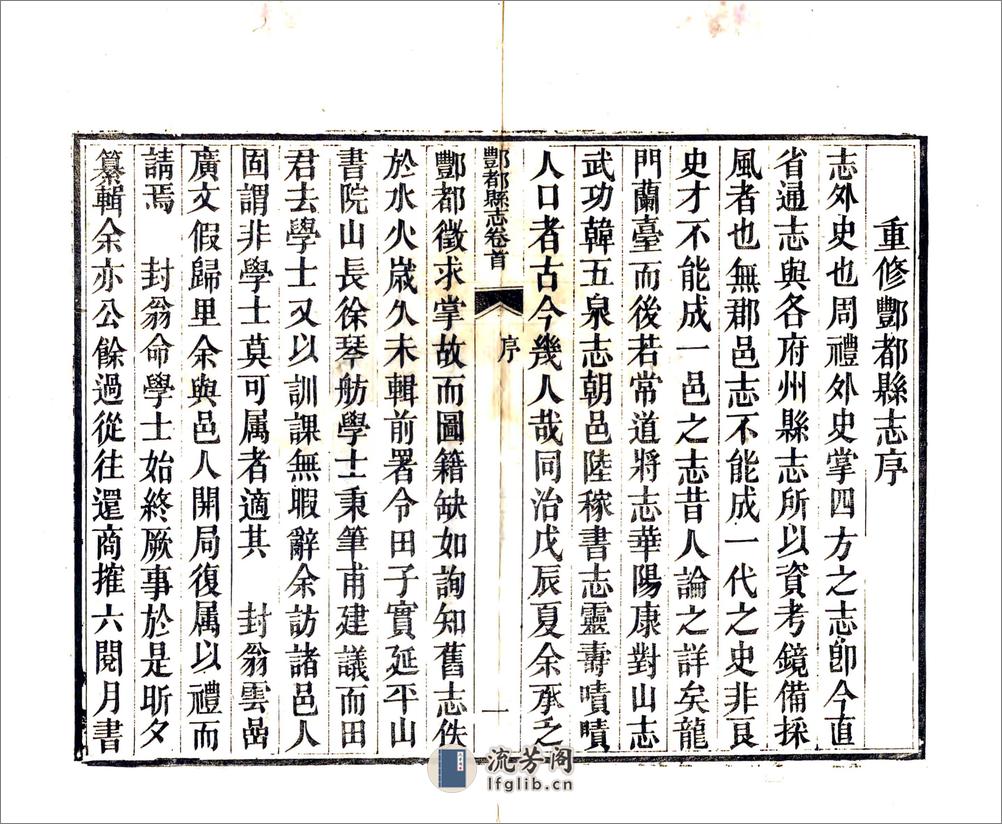 重修酆都縣志序
志外史也周禮外史掌四方之志卽今直
省通志與各府州縣志所以資考鏡備採
風者也無郡邑志不能成一代之史非良
史才不能成一邑之志昔人論之詳矣龍
門蘭臺而後若常道將志華陽康對山志
武功韓五泉志朝邑陸稼書志靈壽嘖嘖
人口者古今幾人哉同治戊辰夏余承乏
酆都縣志卷首
序
一
酆都徵求掌故而圖籍缺如詢知舊志佚
於水火歲久未輯前署令田子實延平山
書院山長徐琴舫學士秉筆甫建議而田
君去學士又以訓課無暇辭余訪諸邑人
固謂非學士莫可属者適其 封翁雲嵒
廣文假歸里余與邑人開局復属以禮而
請焉 封翁命學士始終厥事於是昕夕
纂輯余亦公餘過從往還商搉六閱月書
流芳阁
lfglib.cn